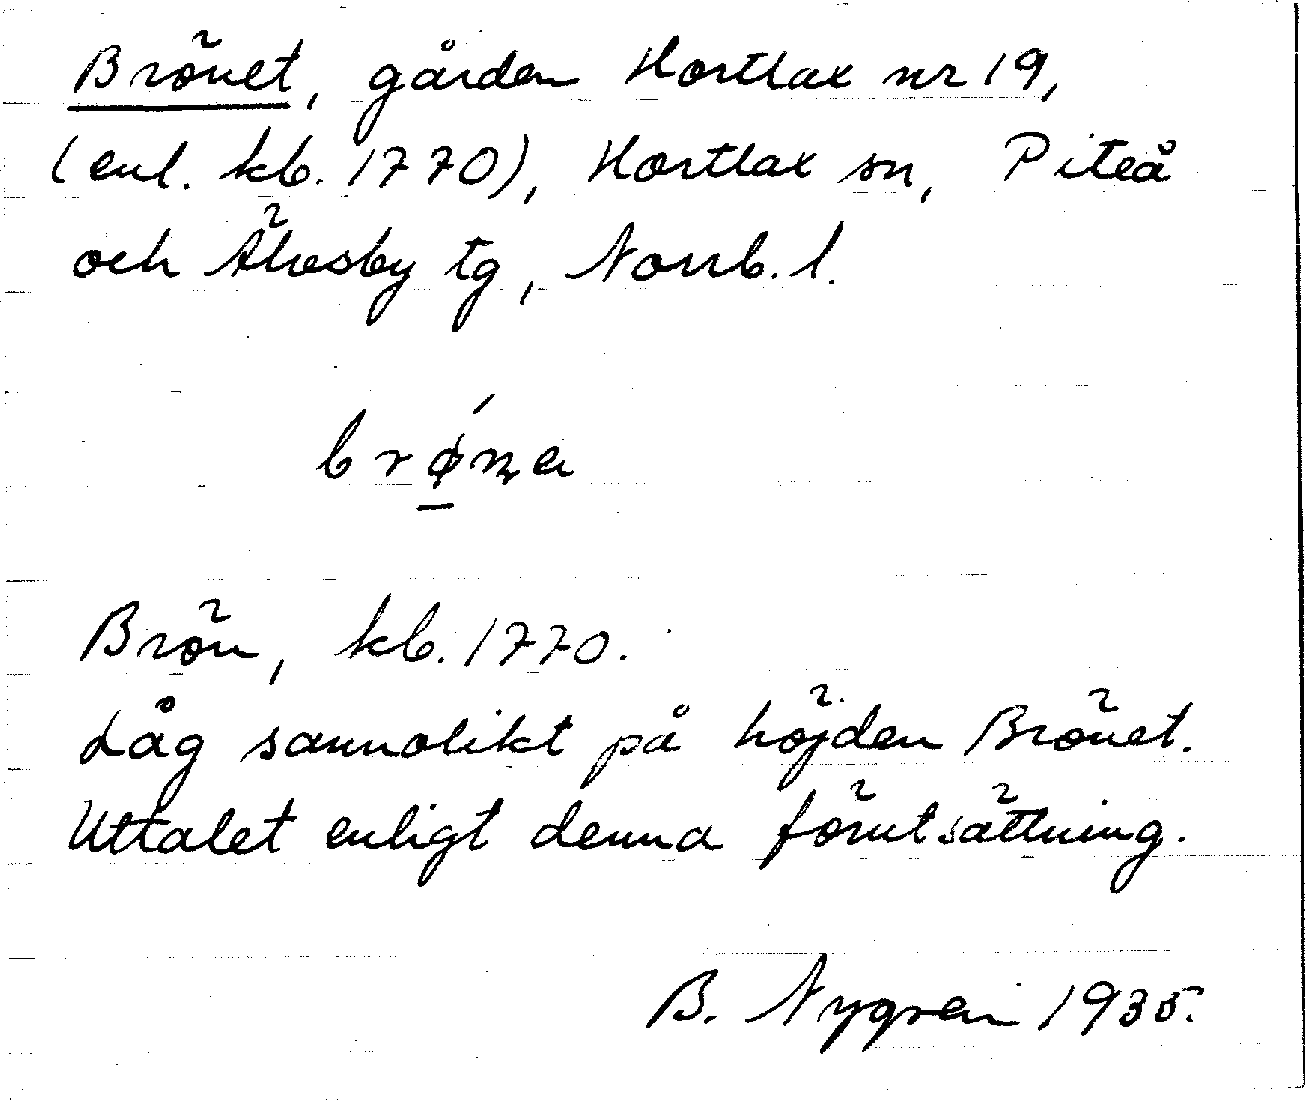 Brönet, gården Hortlax nr 19,
(enl. kb. 1770), Hortlax sn, Piteå
och Älvsby tg, Norrb. l.
brǿ̱na
Brön, kb. 1770.
Låg sannolikt på höjden Brönet.
Uttalet enligt denna förutsättning.
B. Nygren 1935.